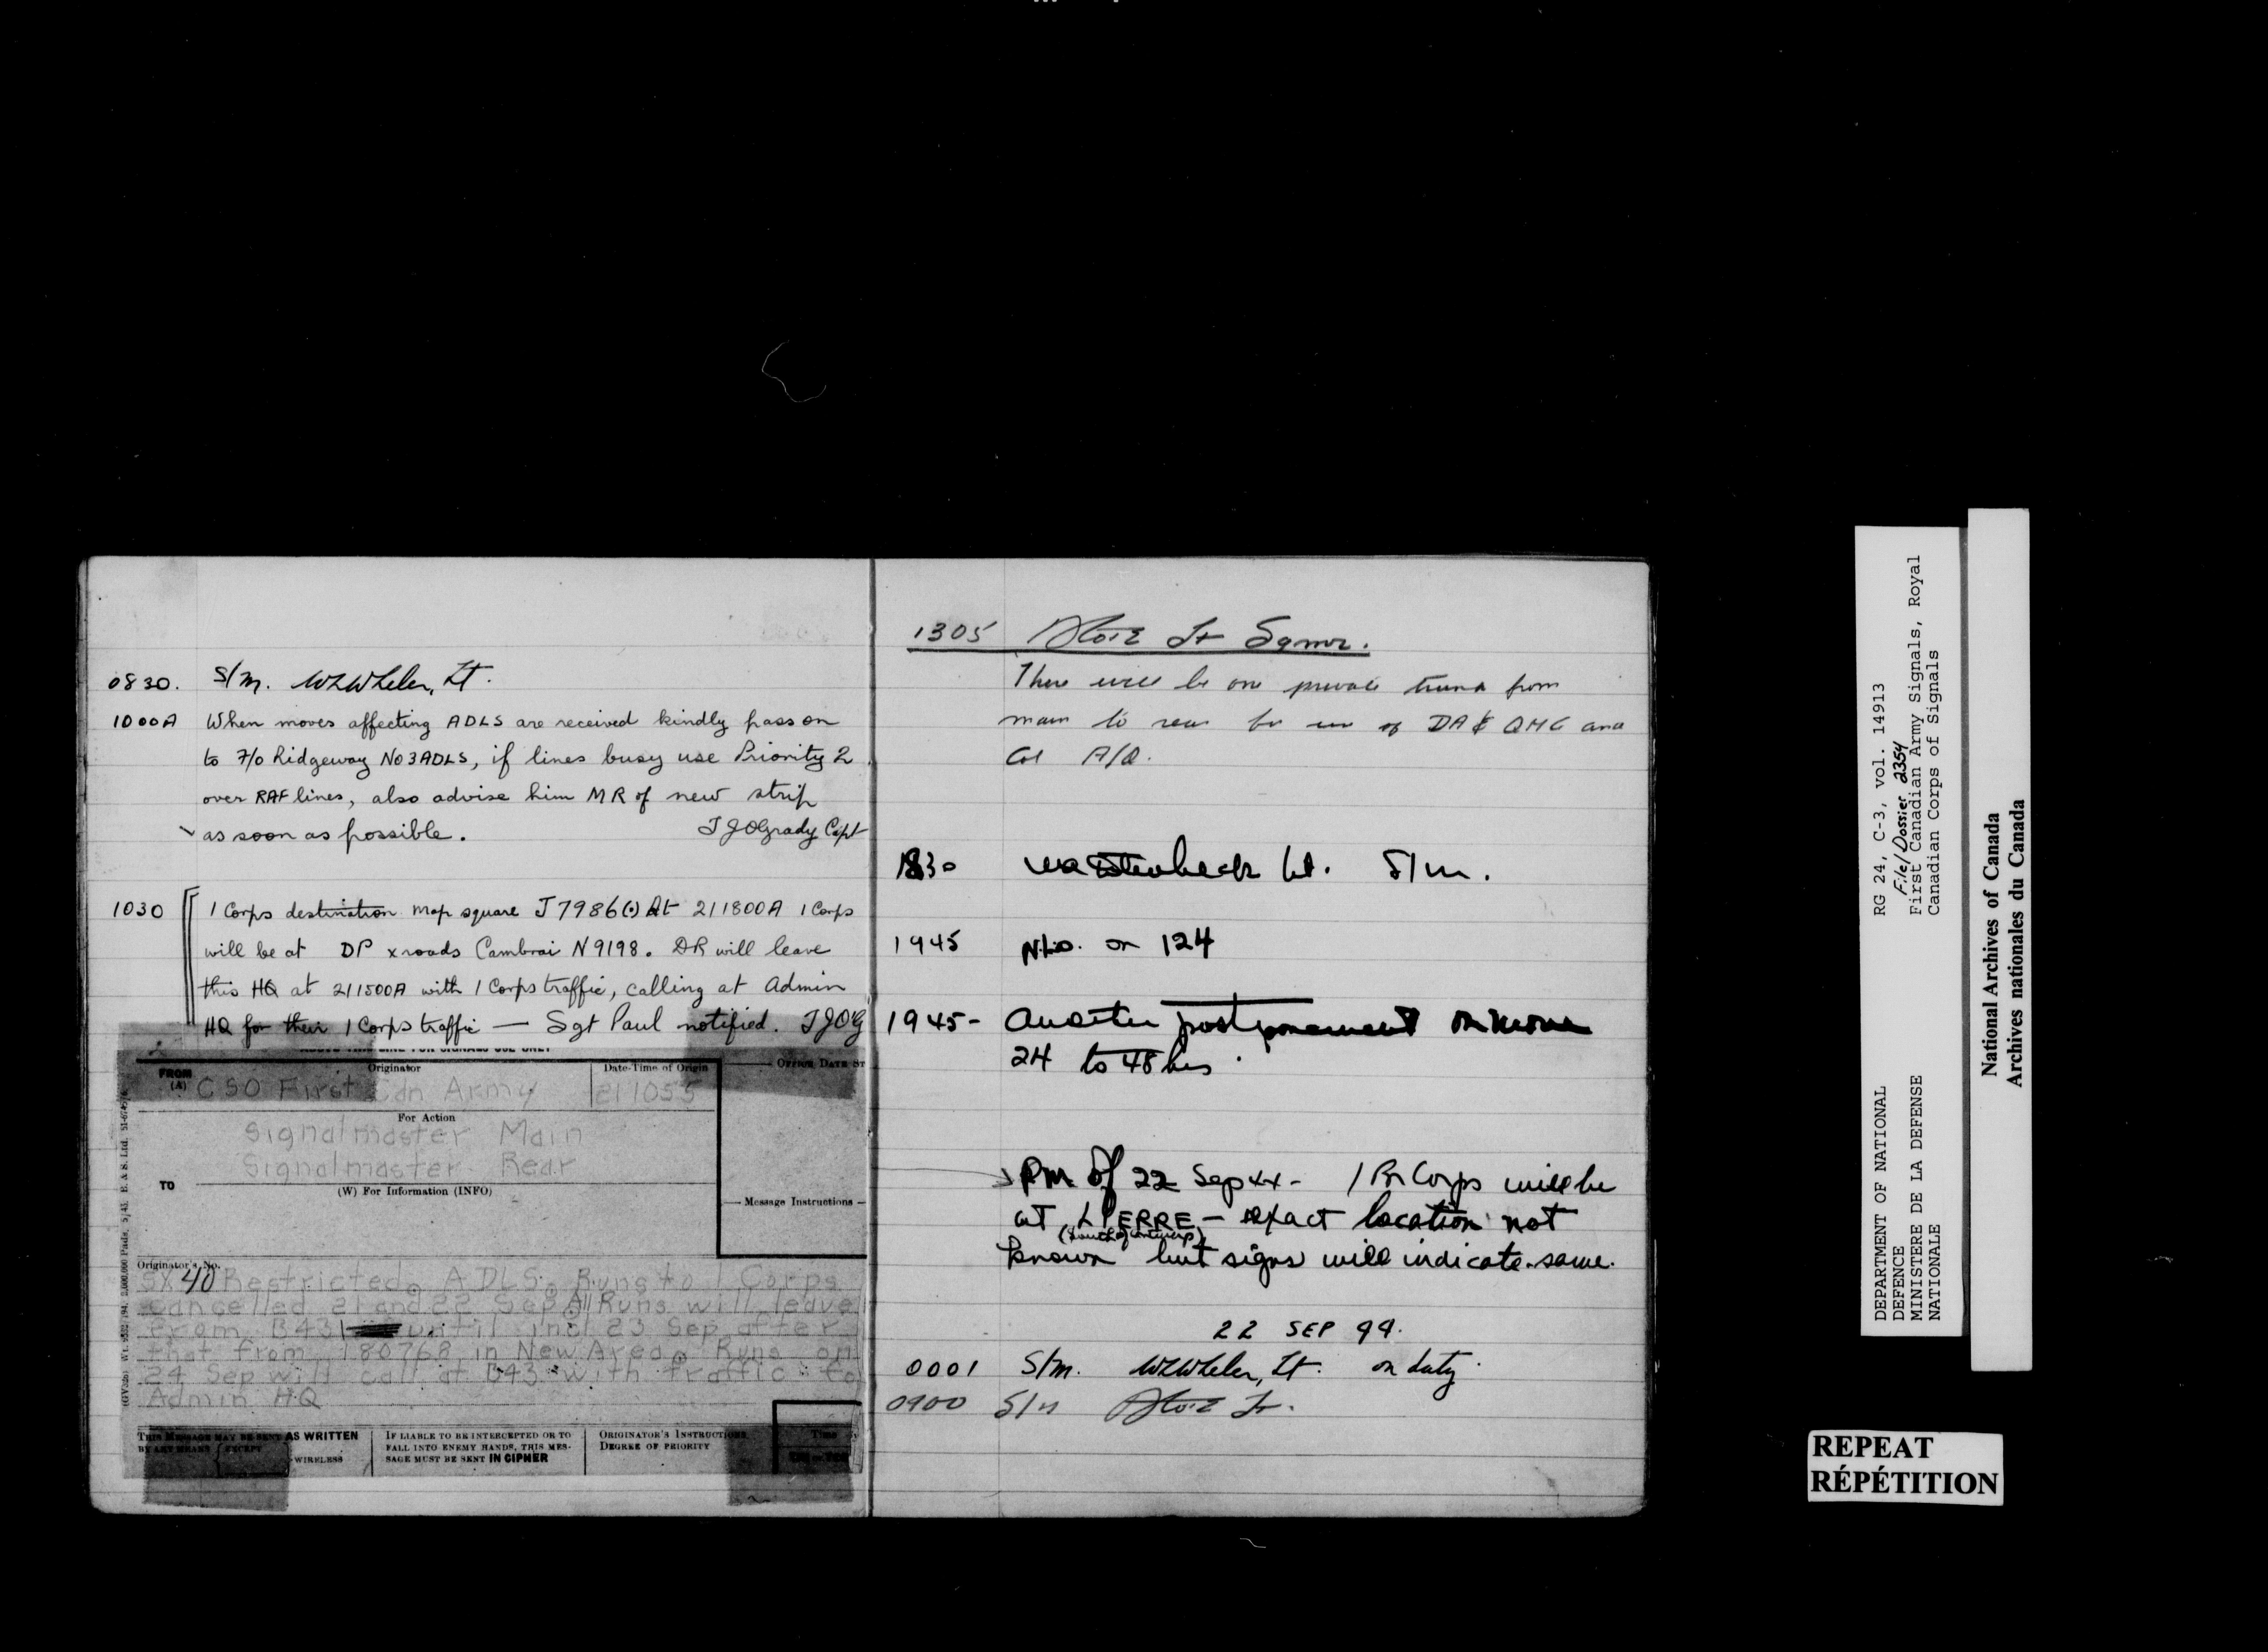 0830. S/M. WLWheler, Lt.
1000A When moves affecting ADLS are received kindly pass on
to F/O Ridgeway No3ADLS, if lines busy use Priority 2
over RAF lines, also advise him MR of new strip
as soon as possible. TJOGrady Capt
1030 1 Corps destination map square J7986(.) At 211800A 1 Corps
will be at DP xroads Cambrai N9198. DR will leave
this HQ at 211500A with 1 Corps traffic, calling at Admin
HQ for their 1 Corps traffic — Sgt Paul notified. TJOG
FROM (A) Originator Date-Time of Origin Office Date St
CSO First Cdn Army 211055
For Action
Signalmaster Main
Signalmaster Rear
TO
(W) For Information (INFO)
Message Instructions
Originator's No.
SX 40 Restricted. ADLS. Runs to 1 Corps
cancelled 21 and 22 Sep. All Runs will leave
from B43 until incl 23 Sep after
that from 180768 in New Area. Runs on
24 Sep will call at B43 with traffic to
Admin HQ
THIS MESSAGE MAY BE SENT AS WRITTEN
BY ANY MEANS EXCEPT WIRELESS
IF LIABLE TO BE INTERCEPTED OR TO
FALL INTO ENEMY HANDS, THIS MES-
SAGE MUST BE SENT IN CIPHER
ORIGINATOR'S INSTRUCTIONS
DEGREE OF PRIORITY
Time
1305 Lt Sqmr.
There will be one private trunk from
main to rear for use of DA & QMG and
Col A/Q.
1830 Lt. S/m.
1945 N.L.O. on 124
1945- Another postponement on move
24 to 48 hrs.
PM of 22 Sep 44 - 1 Br Corps will be
at LIERRE - exact location not
(South of Antwerp)
known but signs will indicate same.
22 SEP 44.
0001 S/m. WLWheler, Lt. on duty.
0900 S/M Lt.
RG 24, C-3, vol. 14913
File/Dossier 2354
First Canadian Army Signals, Royal
Canadian Corps of Signals
DEPARTMENT OF NATIONAL
DEFENCE
MINISTERE DE LA DEFENSE
NATIONALE
National Archives of Canada
Archives nationales du Canada
REPEAT
RÉPÉTITION